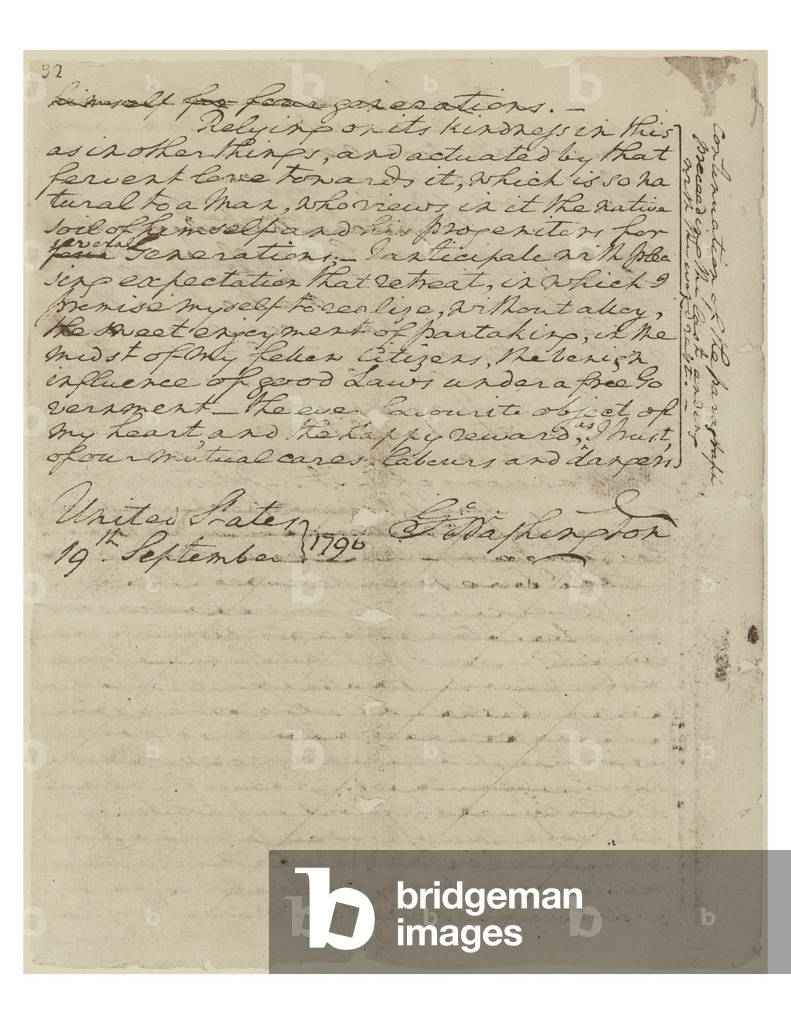 32
himself for four generations. —
Relying on its kindness in this
as in other things, and actuated by that
fervent love towards it, which is so na
tural to a Man, who views in it the native
soil of himself and his progenitors for
several
four Generations; — I anticipate with plea
sing expectation that retreat, in which I
promise myself to realize, without alloy,
the sweet enjoyment of partaking, in the
midst of my fellow Citizens, the benign
influence of good Laws under a free Go
vernment — the ever favourite object of
my heart, and the happy reward, as I trust,
of our mutual cares, labours and dangers.
United States
19th September } 1796
Go Washington
Continuation of the paragraph
preceeding the last ending
with the word rest. —
bridgeman
images